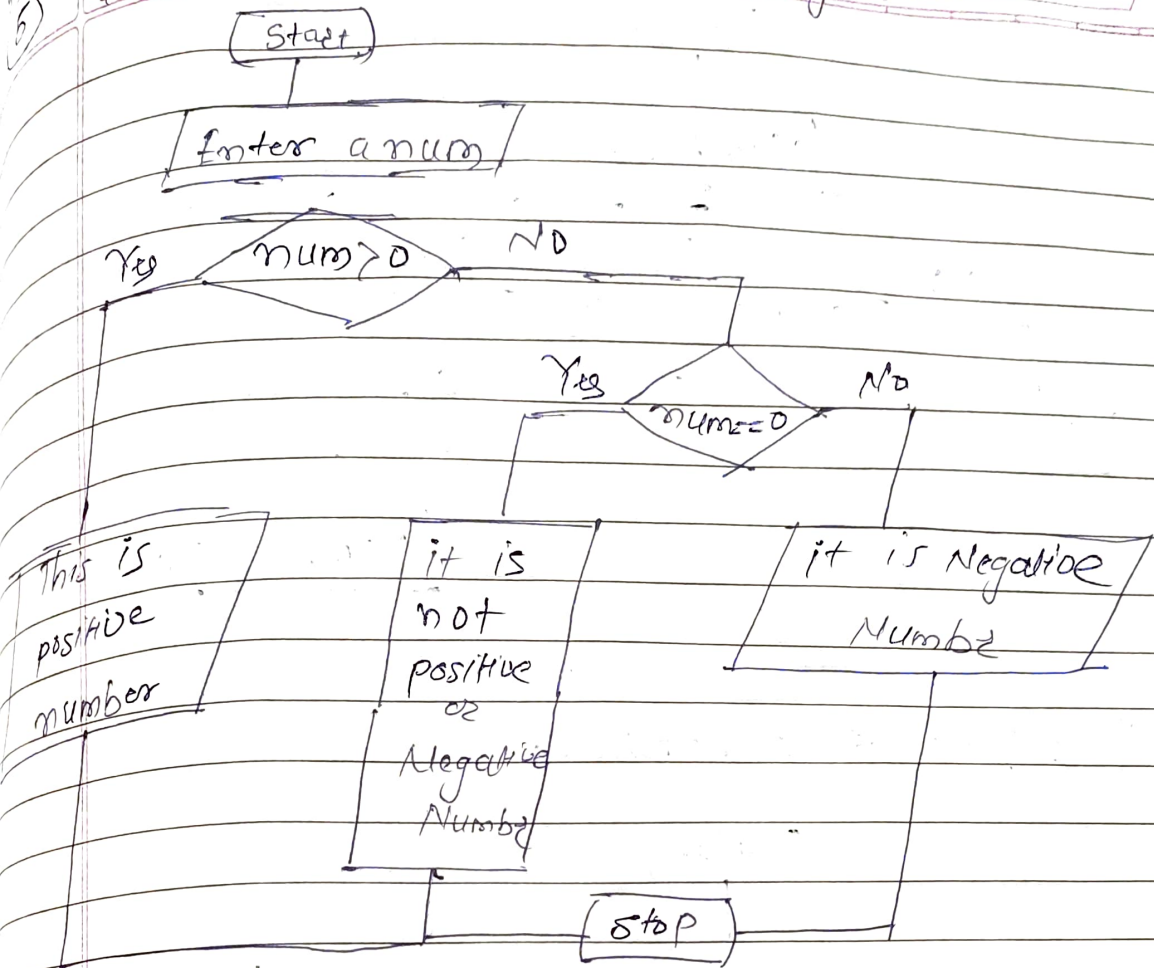 5)
Start
Enter a num
num>0
Yes
No
num==0
Yes
No
This is
positive
number
it is
not
positive
or
Negative
Number
it is Negative
Number
Stop